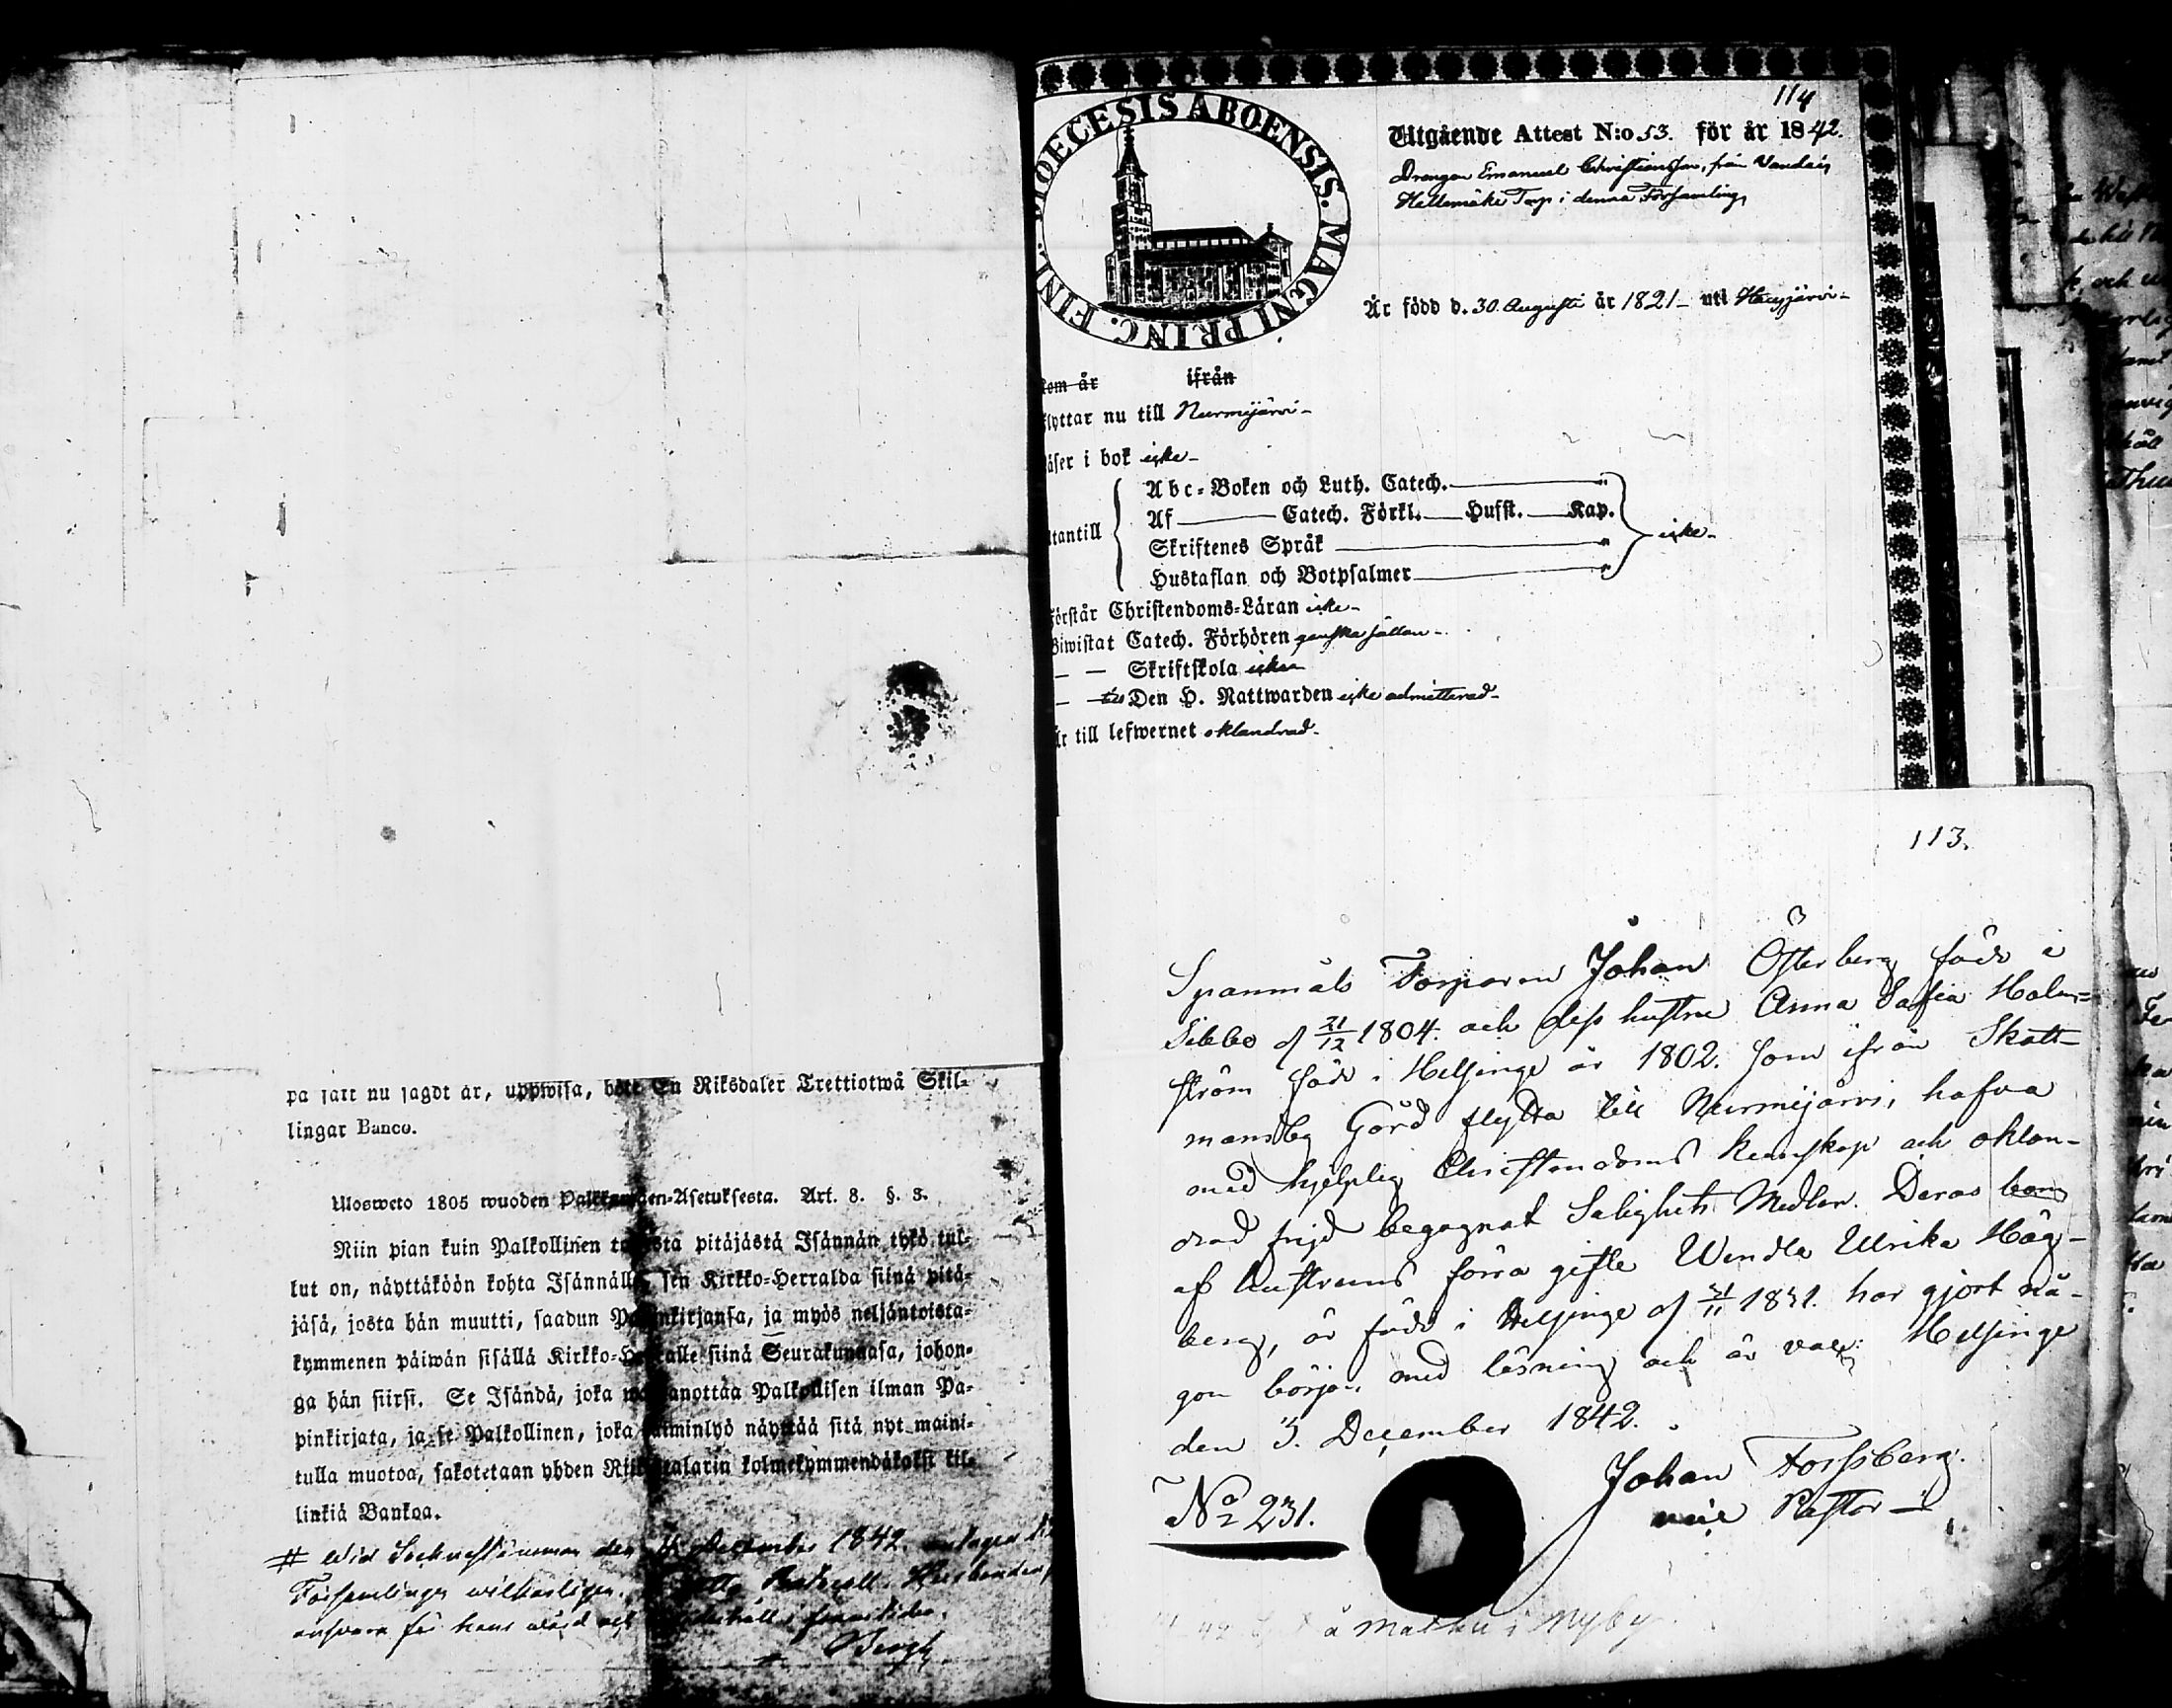 på satt nu sagdt är, uppwisa, böte En Riksdaler Trettiotwå Skil-
lingar Banco.
Ulosweto 1805 wuoden Palkkawäen-Asetuksesta. Art. 8. §. 3.
Niin pian kuin Palkollinen toisesta pitäjästä Isännän tykö tul-
lut on, näyttäköön kohta Isännälle sen Kirkko-Herralda siinä pitä-
jäsä, josta hän muutti, saadun Papinkirjansa, ja myös neljäntoista-
kymmenen päiwän sisällä Kirkko-Herralle siinä Seurakunnasa, johon-
ga hän siirsi. Se Isändä, joka wastanottaa Palkollisen ilman Pa-
pinkirjata, ja se Palkollinen, joka laiminlyö näyttää sitä nyt maini-
tulla muotoa, sakotetaan yhden Riikintalarin kolmekymmendäkaksi kil-
linkiä Bankoa.
# Wid Sockne stämman den December 1842. antagen
Församlingen Husbonden
ansvara för hans wård och framtiden.
Bergh
114
DIOECESIS ABOENSIS. MAGNI PRINC. FINL.
Utgående Attest N:o 53. för år 1842.
Drengen Emanuel Christiansson, från Vandais
Hellemäki Torp i denna Församling,
Är född d. 30 Augusti år 1821 – uti Hausjärvi –
kom år ifrån
flyttar nu till Nurmijärvi –
läser i bok icke –
Utantill
Abc-Boken och Luth. Catech. "
Af Catech. Förkl. Husst. Kap.
Skriftenes Språk "
Hustaflan och Botpsalmer "
icke –
Förstår Christendoms-Läran icke –
Biwistat Catech. Förhören ganska sällan –
— — Skriftskola icke
— — till Den H. Nattwarden icke admitterad –
Är till lefwernet oklandrad –
113.
Spanmåls Torparen Johan Österberg född i
Sibbo d 21/12 1804. och dess hustru Anna Sofia Holm=
ström född i Helsinge år 1802. som ifrån Skatt-
mansby Gård flytta till Nurmijärvi, hafva
med hjelplig Christendoms kunskap och oklan-
drad frejd begagnat Salighets Medlen. Deras barn
af hustruns förra gifte Wendla Ulrika Hög-
berg, är född i Helsinge d 21/11 1831. har gjort nå-
gon början med läsning och är vacc: Helsinge
den 3. December 1842.
Johan Forssberg.
vice Pastor
No 231.
å Malku i Nyby